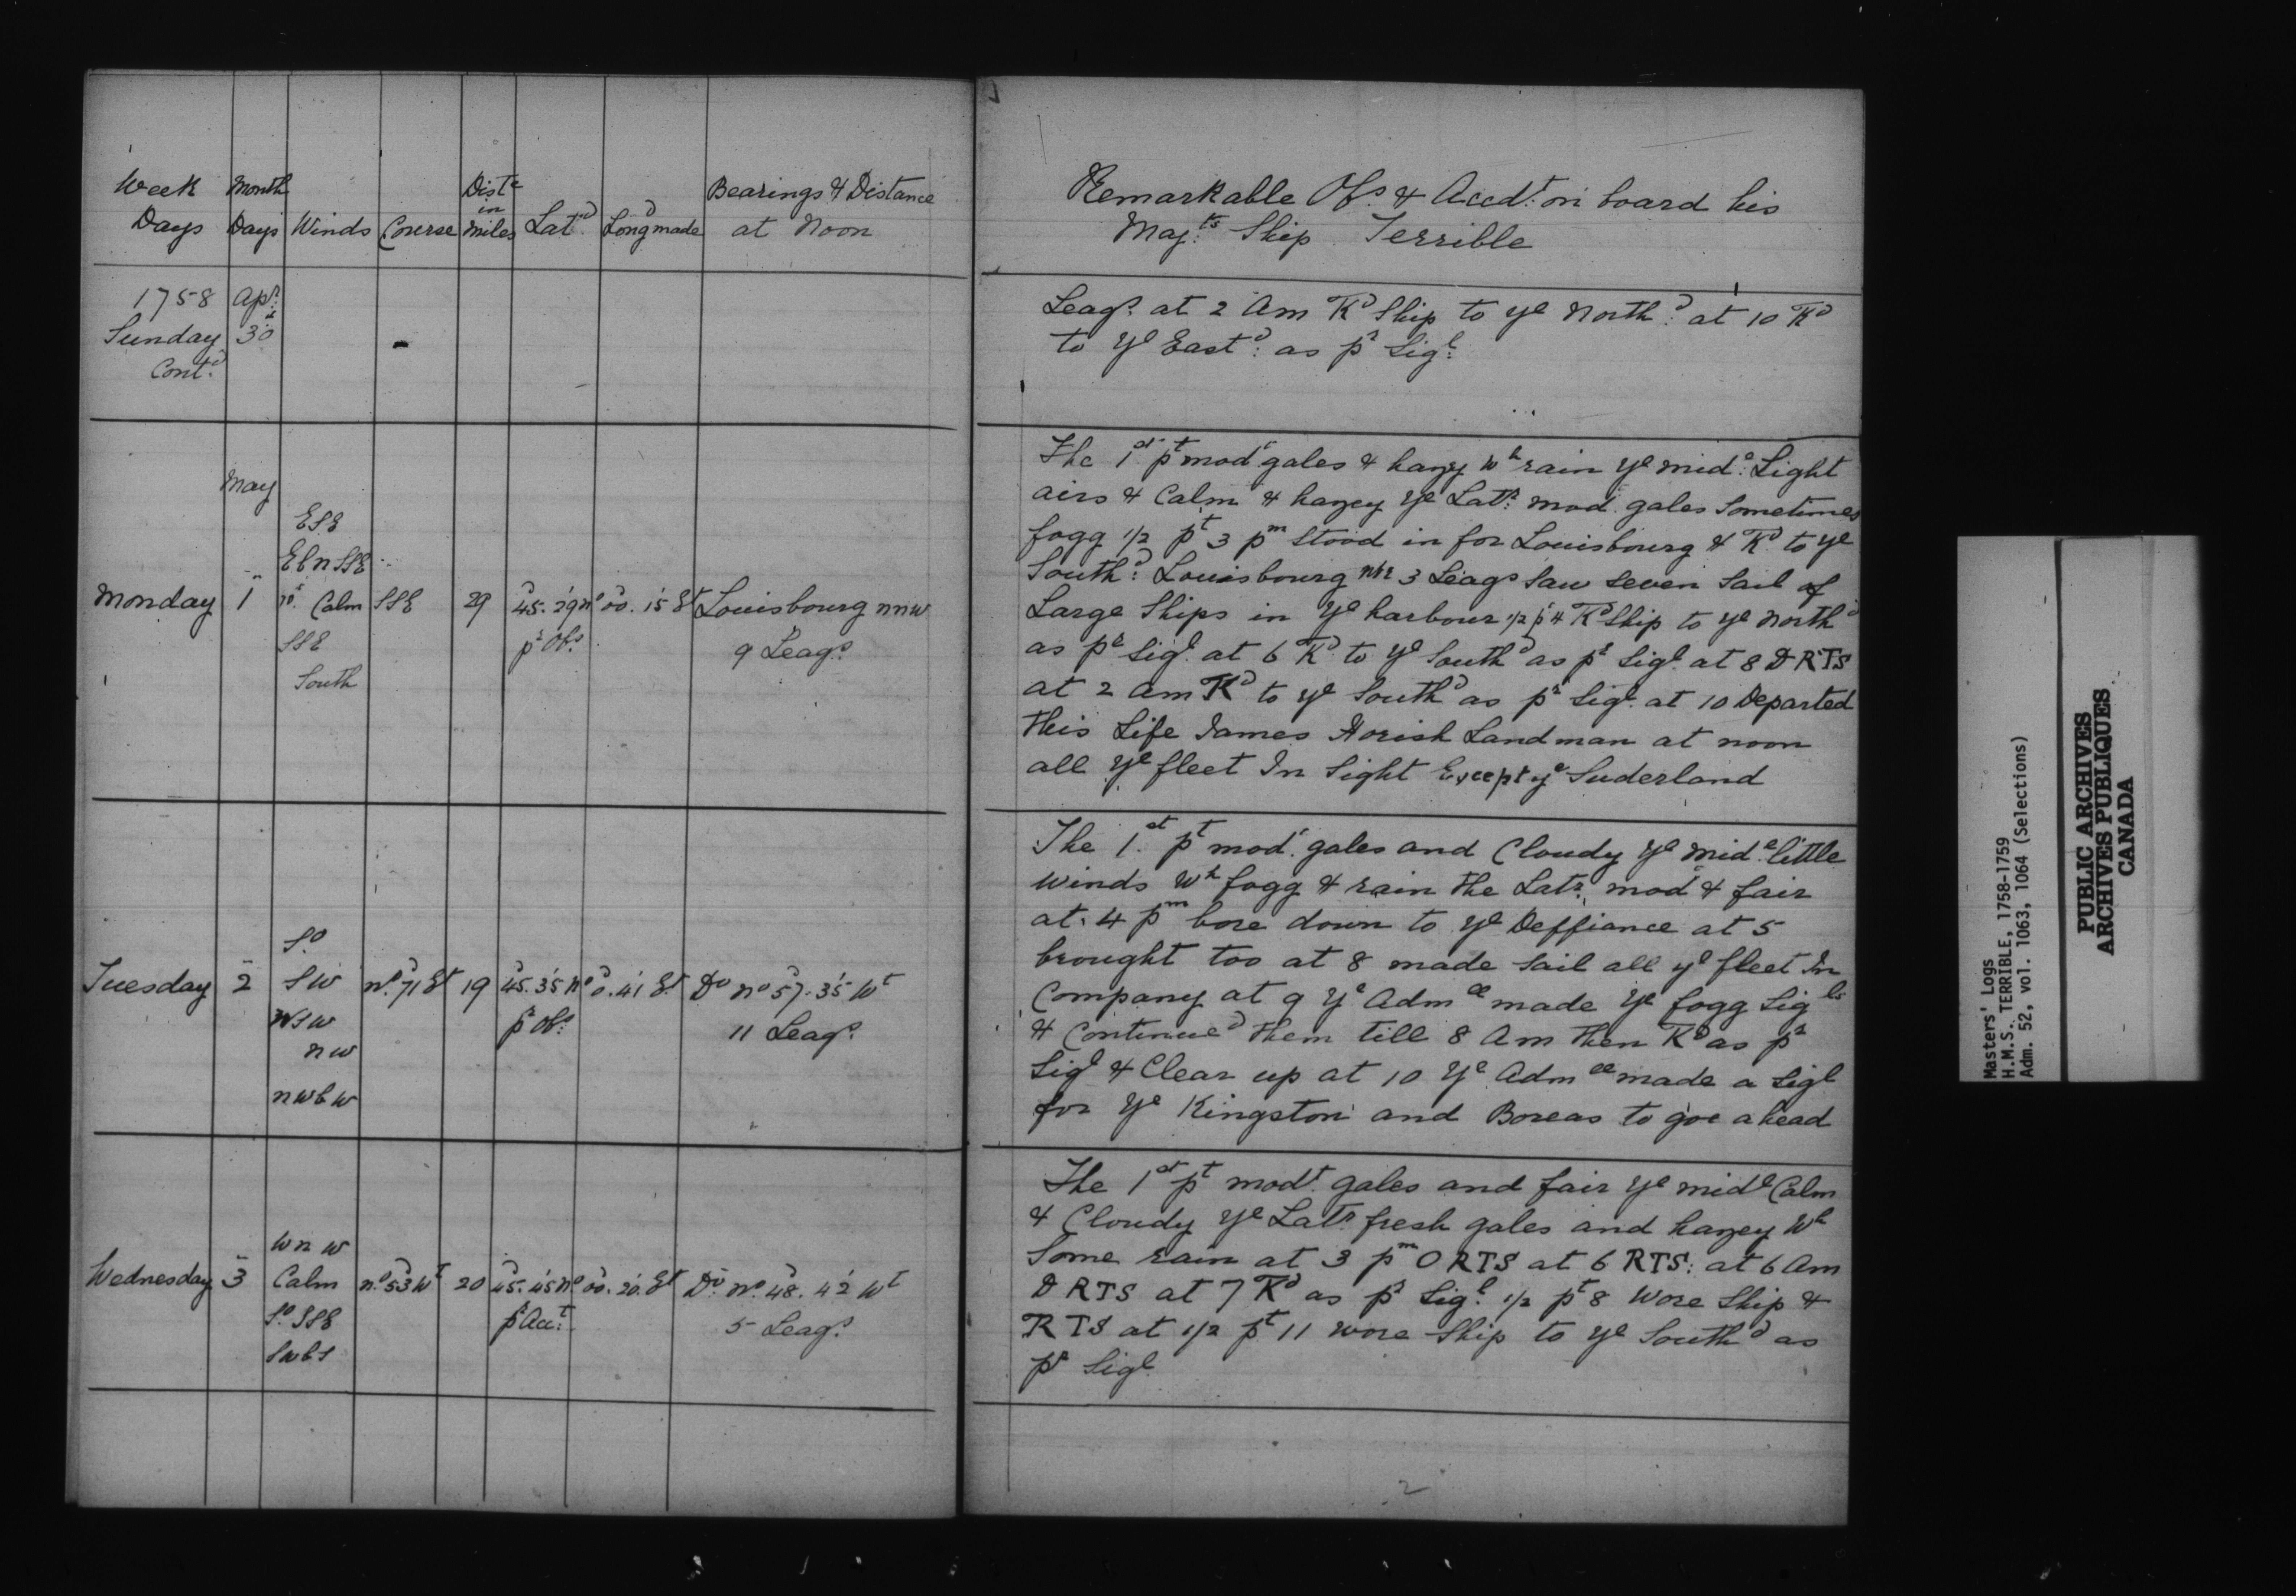 Week Month Dist.e Bearings & Distance
Days Days Winds Course in miles Lat.d Long.d made at Noon
1758 Ap.r
Sunday 30
Cont.d
May
ESE
EbN SSE
Monday 1 Calm SSE 29 45.29 N.o 00.15 Et Louisbourg nnw
SSE p.r Obs. 9 Leags.
South
S.o
Tuesday 2 SW N.o 71 Et 19 45.35 N.o 0.41 Et D.o N.o 57.35 Wt
WSW p.r Obs. 11 Leags.
nw
nwbw
wnw
Wednesday 3 Calm N.o 53 Wt 20 45.45 N.o 00.20 Et D.o N.o 48.42 Wt
S.o SSE p.r Acc.t 5 Leags.
Swbs
Remarkable Obs. & Accd.t on board his
Maj.ts Ship Terrible
Leags. at 2 Am Tk.d Ship to ye North.d at 10 Tk.d
to ye East.d: as pr Sigl.
The 1st pt mod.t gales & hazy wh rain ye mid.e Light
airs & Calm & hazey ye Latr. mod. gales Sometimes
fogg 1/2 pt 3 pm Stood in for Louisbourg & Tk.d to ye
South.d: Louisbourg 3 Leags Saw Seven Sail of
Large Ships in ye harbour 1/2 pt 4 Tk.d Ship to ye North.d
as pr Sigl. at 6 Tk.d to ye South.d as pr Sigl. at 8 D RTS
at 2 am Tk.d to ye South.d as pr Sigl. at 10 Departed
This Life James Horish Landman at noon
all ye fleet In Sight Except ye Suderland
The 1st pt mod.t gales and Cloudy ye mid.e little
winds wh fogg & rain the Latr. mod.t & fair
at 4 pm bore down to ye Deffiance at 5
brought too at 8 made Sail all ye fleet In
Company at 9 ye Adm.ll made ye fogg Sigls
& Continued them till 8 Am then Tk.d as pr
Sigl & Clear up at 10 ye Adm.ll made a Sigl
for ye Kingston and Boreas to goe ahead
The 1st pt modt. gales and fair ye mid.e Calm
& Cloudy ye Latr. fresh gales and hazey wh
Some rain at 3 pm O RTS at 6 RTS: at 6 Am
D RTS at 7 Tk.d as pr Sigl. 1/2 pt 8 Wore Ship &
RTS at 1/2 pt 11 wore Ship to ye South.d as
pr Sigl.
2
Masters' Logs
H.M.S. TERRIBLE, 1758-1759
Adm. 52, vol. 1063, 1064 (Selections)
PUBLIC ARCHIVES
ARCHIVES PUBLIQUES
CANADA